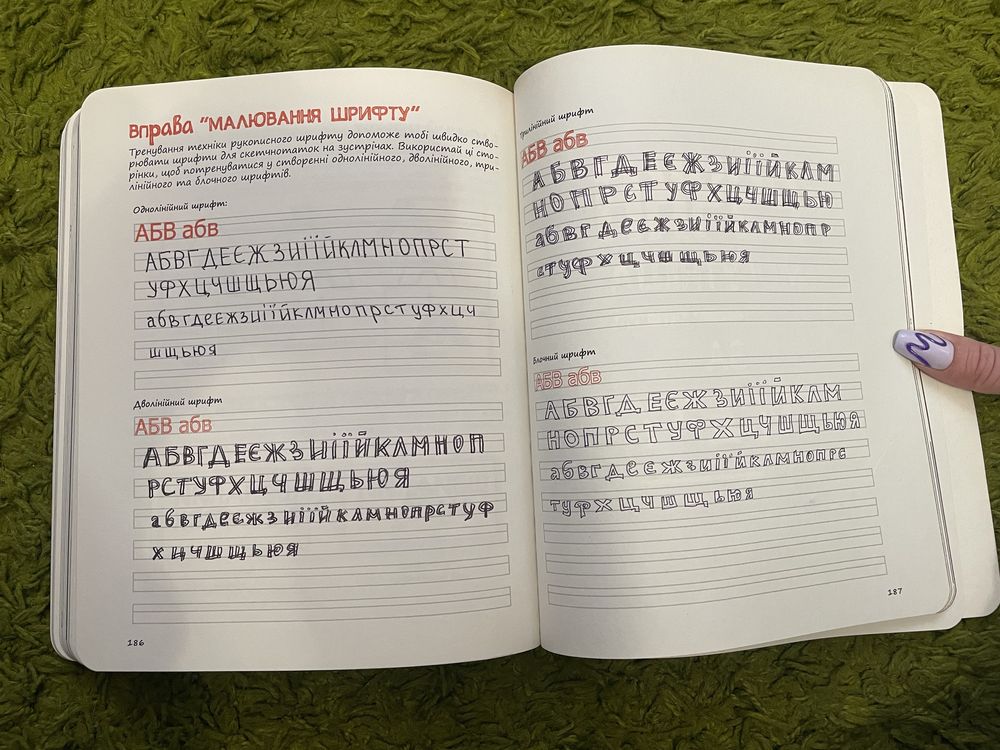 вправа "МАЛЮВАННЯ ШРИФТУ"
Тренування техніки рукописного шрифту допоможе тобі швидко ство-
рювати шрифти для скетчнотаток на зустрічах. Використай ці сто-
рінки, щоб потренуватися у створенні однолінійного, дволінійного, три-
лінійного та блочного шрифтів.
Однолінійний шрифт:
АБВ абв
АБВГДЕЄЖЗИІЇЙКЛМНОПРСТ
УФХЦЧШЩЬЮЯ
абвгдеєжзиіїйклмнопрстуфхцч
шщьюя
Дволінійний шрифт
АБВ абв
АБВГДЕЄЖЗИІЇЙКЛМНОП
РСТУФХЦЧШЩЬЮЯ
абвгдеєжзиіїйклмнопрстуф
хцчшщьюя
186
Трилінійний шрифт
АБВ абв
АБВГДЕЄЖЗИІЇЙКЛМ
НОПРСТУФХЦЧШЩЬЮ
абвгдеєжзиіїйклмнопр
стуфхцчшщьюя
Блочний шрифт
АБВ абв
АБВГДЕЄЖЗИІЇЙКЛМ
НОПРСТУФХЦЧШЩЬЮЯ
абвгдеєжзиіїйклмнопрс
туфхцчшщьюя
187